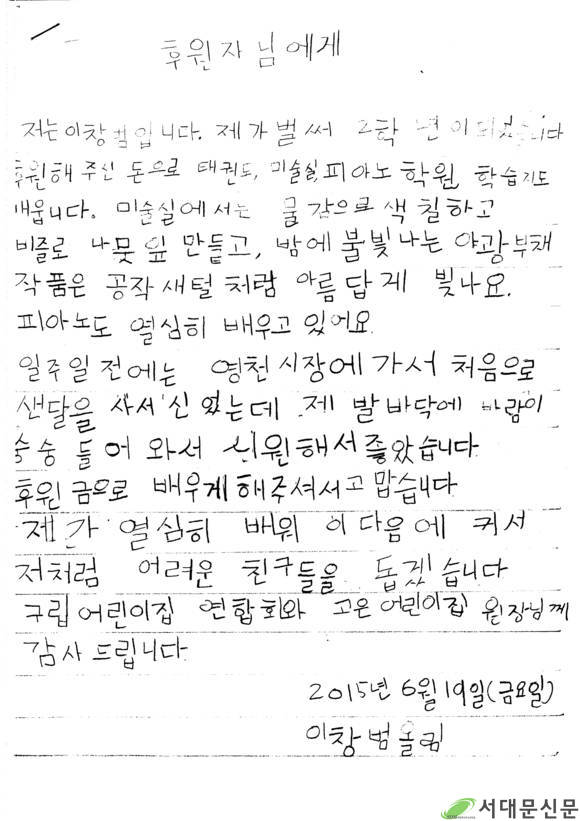 후원자님에게
저는 이창범입니다. 제가 벌써 2학년이 되었습니다
후원해 주신 돈으로 태권도, 미술실, 피아노 학원, 학습지도
배웁니다. 미술실에서는 물감으로 색칠하고
비즐로 나뭇잎 만들고, 밤에 불빛나는 야광부채
작품은 공작새털처럼 아름답게 빛나요.
피아노도 열심히 배우고 있어요.
일주일 전에는 영천시장에 가서 처음으로
샌달을 사서 신었는데 제 발바닥에 바람이
숭숭 들어 와서 시원해서 좋았습니다.
후원금으로 배우게 해주셔서 고맙습니다
제가 열심히 배워 이 다음에 커서
저처럼 어려운 친구들을 돕겠습니다
구립어린이집 연합회와 고은어린이집 원장님께
감사드립니다.
2015년 6월 19일(금요일)
이창범올림
서대문신문